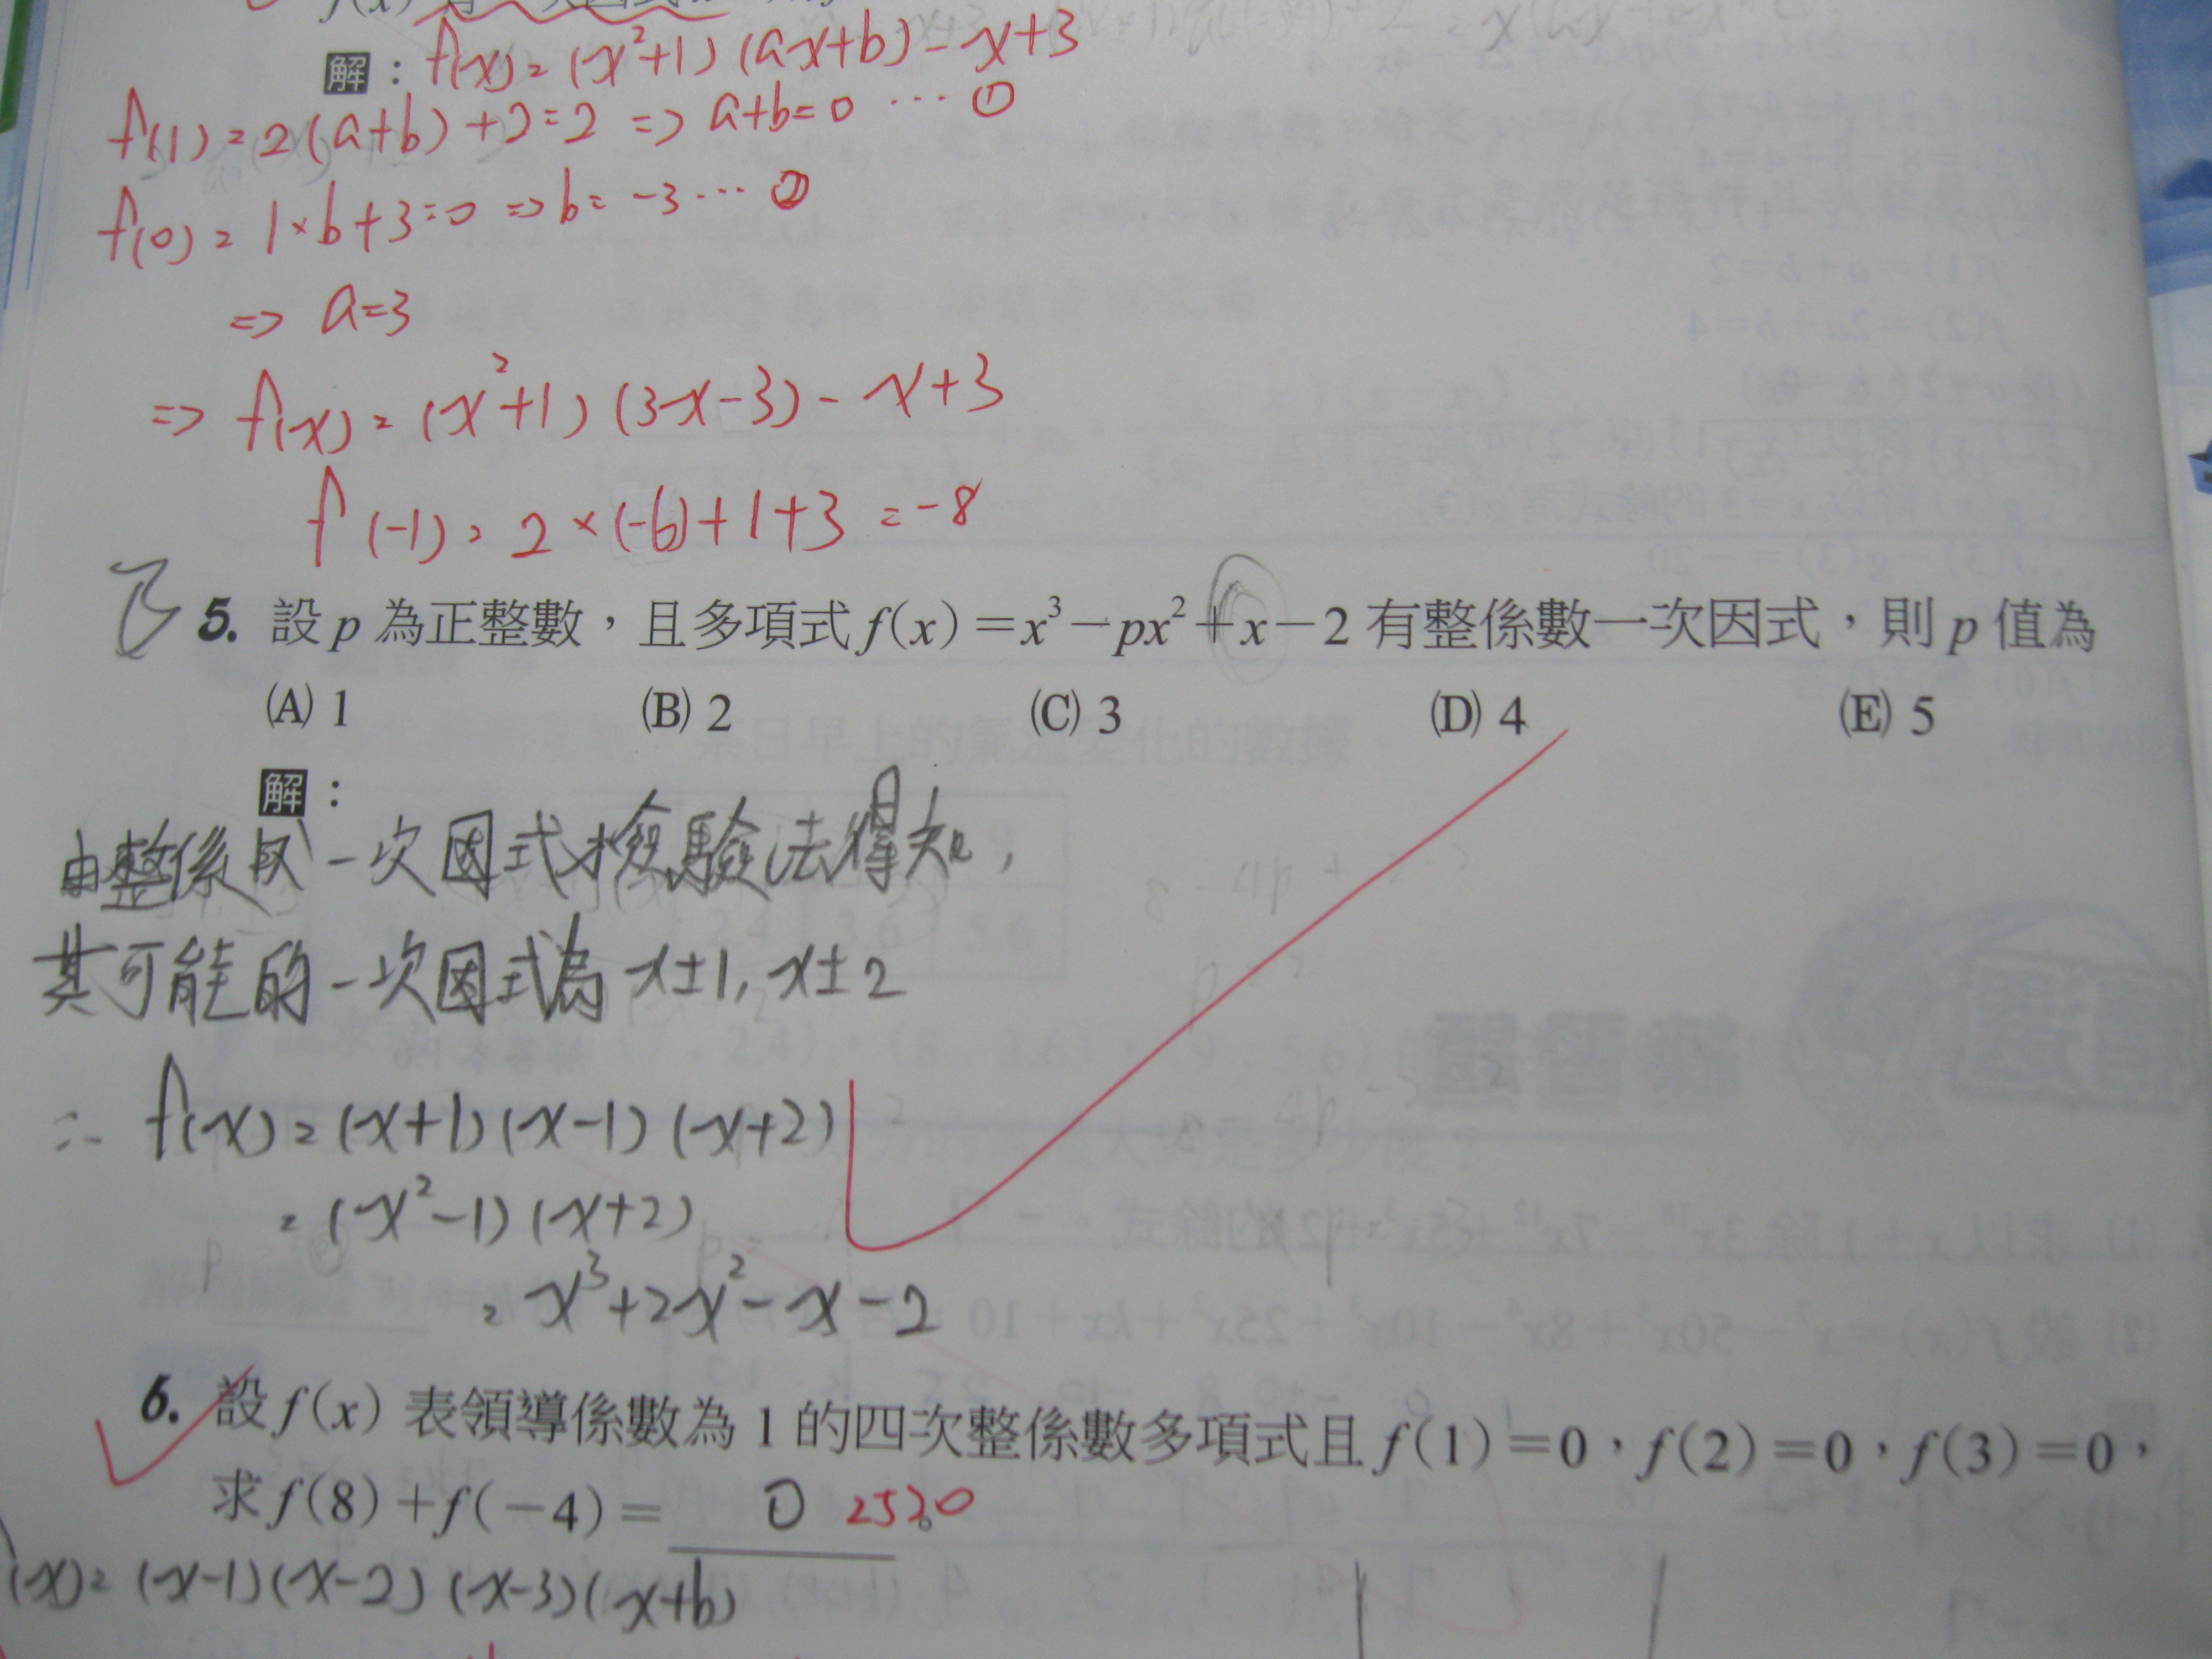 解：f(x)=(x²+1)(ax+b)-x+3
f(1)=2(a+b)+2=2 => a+b=0 … ①
f(0)=1×b+3=0 => b=-3 … ②
=> a=3
=> f(x)=(x²+1)(3x-3)-x+3
f(-1)=2×(-6)+1+3=-8
5. 設 p 為正整數，且多項式 f(x)=x³-px²+x-2 有整係數一次因式，則 p 值為
(A) 1 (B) 2 (C) 3 (D) 4 (E) 5
解：
由整係數一次因式檢驗法得知，
其可能的一次因式為 x±1, x±2
∴ f(x)=(x+1)(x-1)(x+2)
=(x²-1)(x+2)
=x³+2x²-x-2
6. 設 f(x) 表領導係數為 1 的四次整係數多項式且 f(1)=0，f(2)=0，f(3)=0，
求 f(8)+f(-4)= 0 2520。
(x)=(x-1)(x-2)(x-3)(x+b)